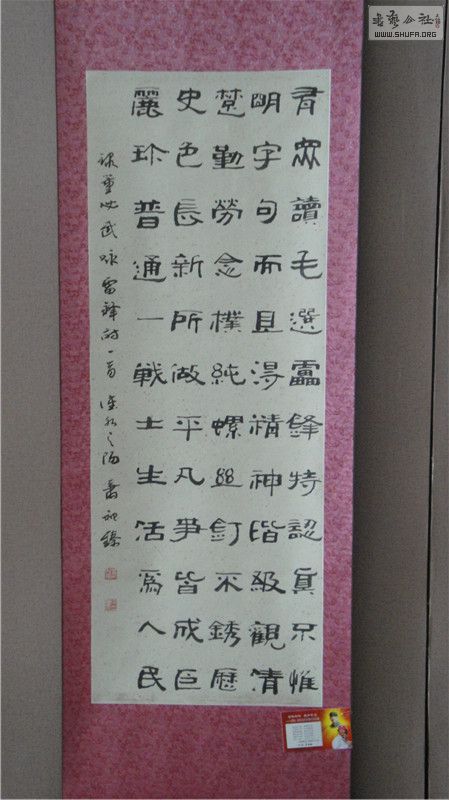 有眾讀毛選靁鋒特認真不惟
明字句而且得精神階級觀清
楚勤勞念樸純螺絲釘不銹歷
史色長新所做平凡爭皆成巨
麗珍普通一戰士生活為人民
錄董必武咏雷鋒詩一首
書藝公社
WWW.SHUFA.ORG